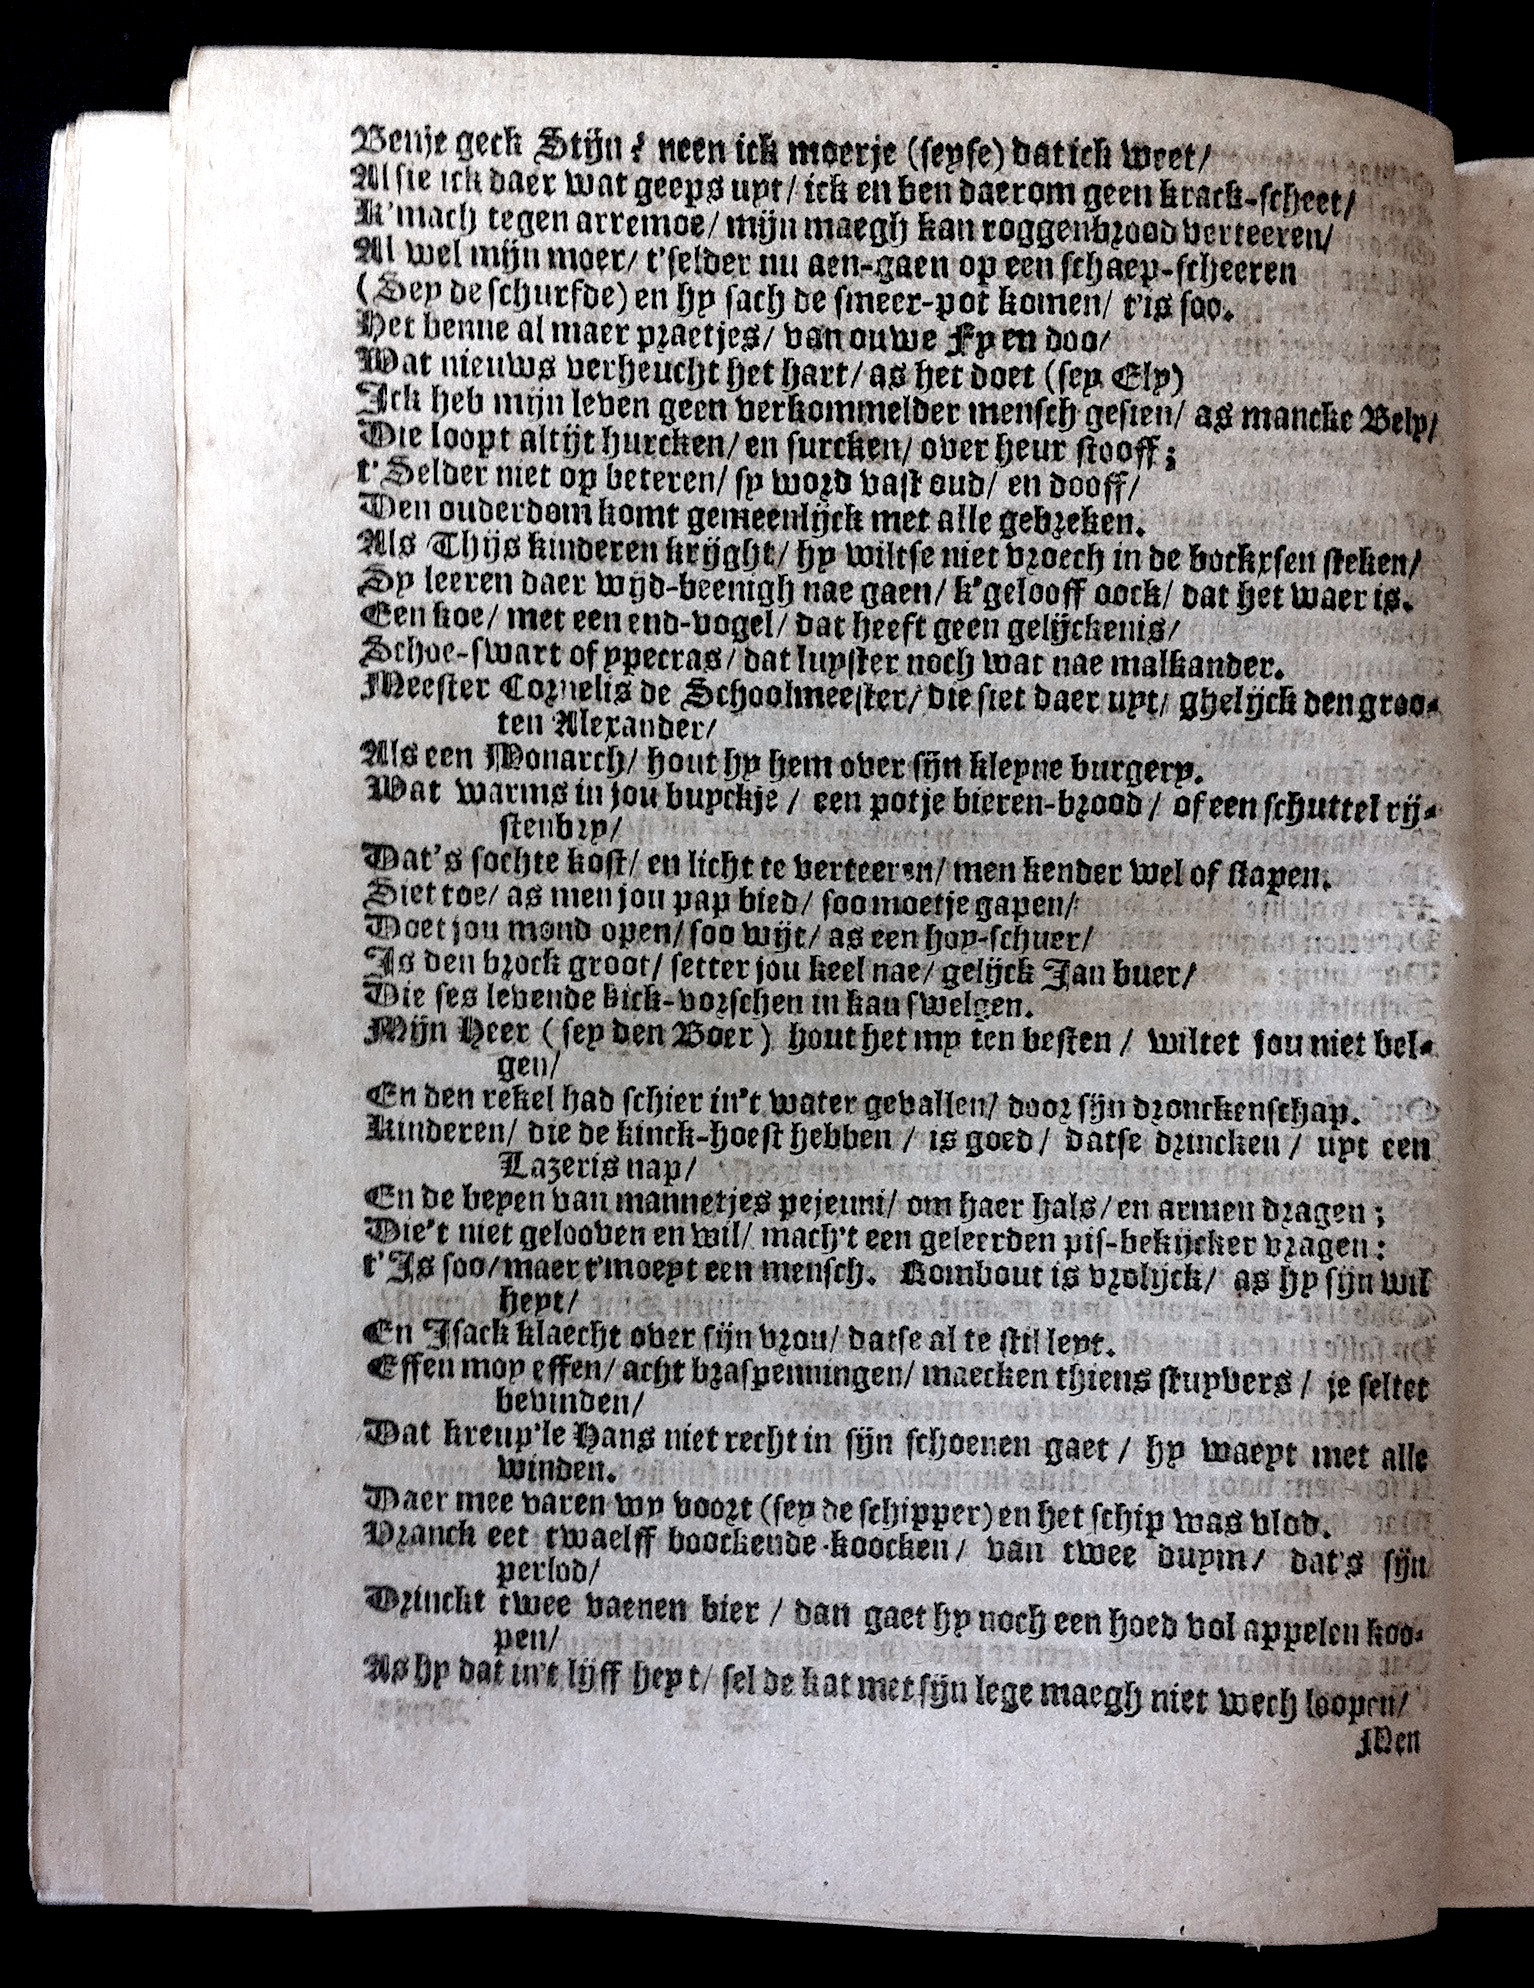 Benje geck Stijn? neen ick moerje (seyse) dat ick weet/
Al sie ick daer wat geeps uyt/ ick en ben daerom geen krack-scheet/
K'mach tegen arremoe/ mijn maegh kan roggenbrood verteeren/
Al wel mijn moer/ t'selder nu aen-gaen op een schaep-scheeren
(Sey de schurfde) en hy sach de smeer-pot komen/ t'is soo.
Het benne al maer praetjes/ van ouwe Fy en doo/
Wat nieuws verheucht het hart/ as het doet (sey Ely)
Ick heb mijn leven geen verkommelder mensch gesien/ as mancke Bely/
Die loopt altijt hurcken/ en surcken/ over heur stooff;
t'Selder niet op beteren/ sy word vast oud/ en dooff/
Den ouderdom komt gemeenlijck met alle gebreken.
Als Thijs kinderen krijght/ hy wiltse niet vroech in de bockxsen steken/
Sy leeren daer wijd-beenigh nae gaen/ k'gelooff oock/ dat het waer is.
Een koe/ met een end-vogel/ dat heeft geen gelijckenis/
Schoe-swart of ypecras/ dat luyster noch wat nae malkander.
Meester Cornelis de Schoolmeester/ die siet daer uyt/ ghelijck den groo-
ten Alexander/
Als een Monarch/ hout hy hem over sijn kleyne burgery.
Wat warms in jou buyckje / een potje bieren-brood / of een schuttel rij-
stenbry/
Dat's sochte kost/ en licht te verteeren/ men kender wel of slapen.
Siet toe/ as men jou pap bied/ soo moetje gapen/
Doet jou mond open/ soo wijt/ as een hoy-schuer/
Is den brock groot/ setter jou keel nae/ gelijck Jan buer/
Die ses levende kick-vorschen in kan swelgen.
Mijn Heer (sey den Boer) hout het my ten besten / wiltet jou niet bel-
gen/
En den rekel had schier in't water gevallen/ door sijn dronckenschap.
Kinderen/ die de kinck-hoest hebben / is goed / datse drincken / uyt een
Lazeris nap/
En de beyen van mannetjes pejeuni/ om haer hals/ en armen dragen;
Die't niet gelooven en wil/ mach't een geleerden pis-bekijcker vragen:
t'Is soo/ maer t'moeyt een mensch. Rombout is vrolijck/ as hy sijn wil
heyt/
En Isack klaecht over sijn vrou/ datse al te stil leyt.
Effen moy effen/ acht braspenningen/ maecken thiens stuyvers / je seltet
bevinden/
Dat kreup'le Hans niet recht in sijn schoenen gaet / hy waeyt met alle
winden.
Daer mee varen wy voort (sey de schipper) en het schip was vlod.
Vranck eet twaelff boockende-koocken/ van twee duym/ dat's sijn
perlod/
Drinckt twee vaenen bier / dan gaet hy noch een hoed vol appelen koo-
pen/
As hy dat in't lijff heyt/ sel de kat met sijn lege maegh niet wech loopen/
Men